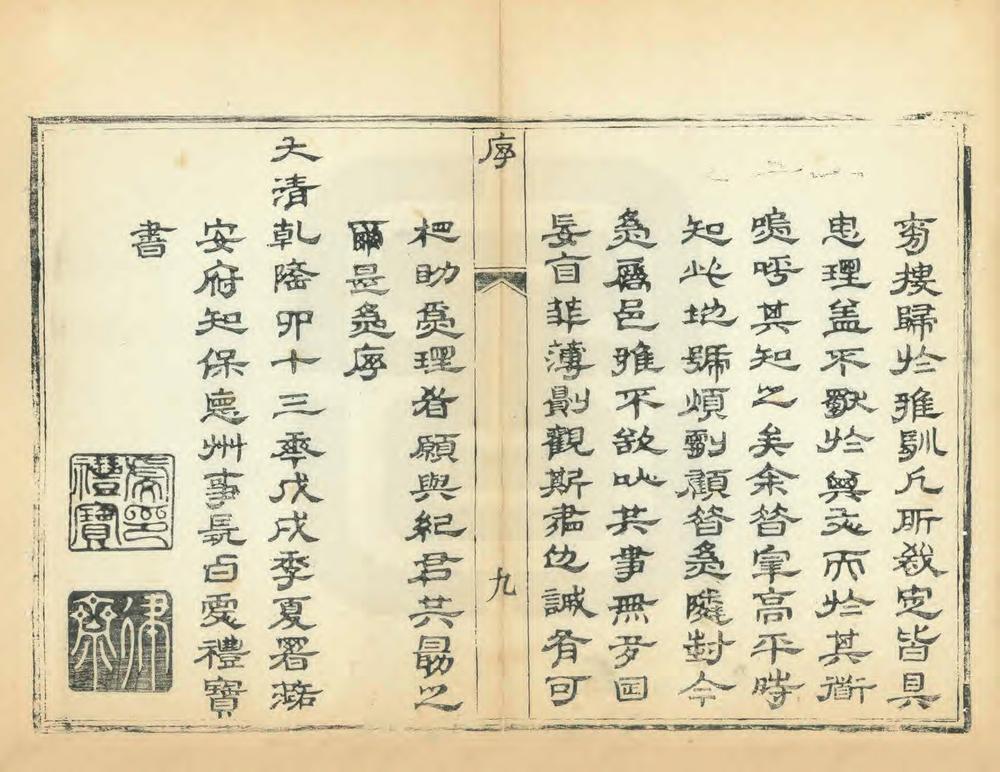 旁摟歸於雅馴凡所裁定皆具
理盖不於而於其
嗚呼其知之矣余昔宰高平時
知此地號煩劇顧昔為隣封今
為屬邑雖不敢以其事無多因
妄自菲薄則觀斯書也誠有可
助為理者願與紀君共勗之
爾是為序
大清乾隆卌十三年戊戌季夏署潞
安府知保德州事長白愛禮寶
書
序
九
愛印禮寶